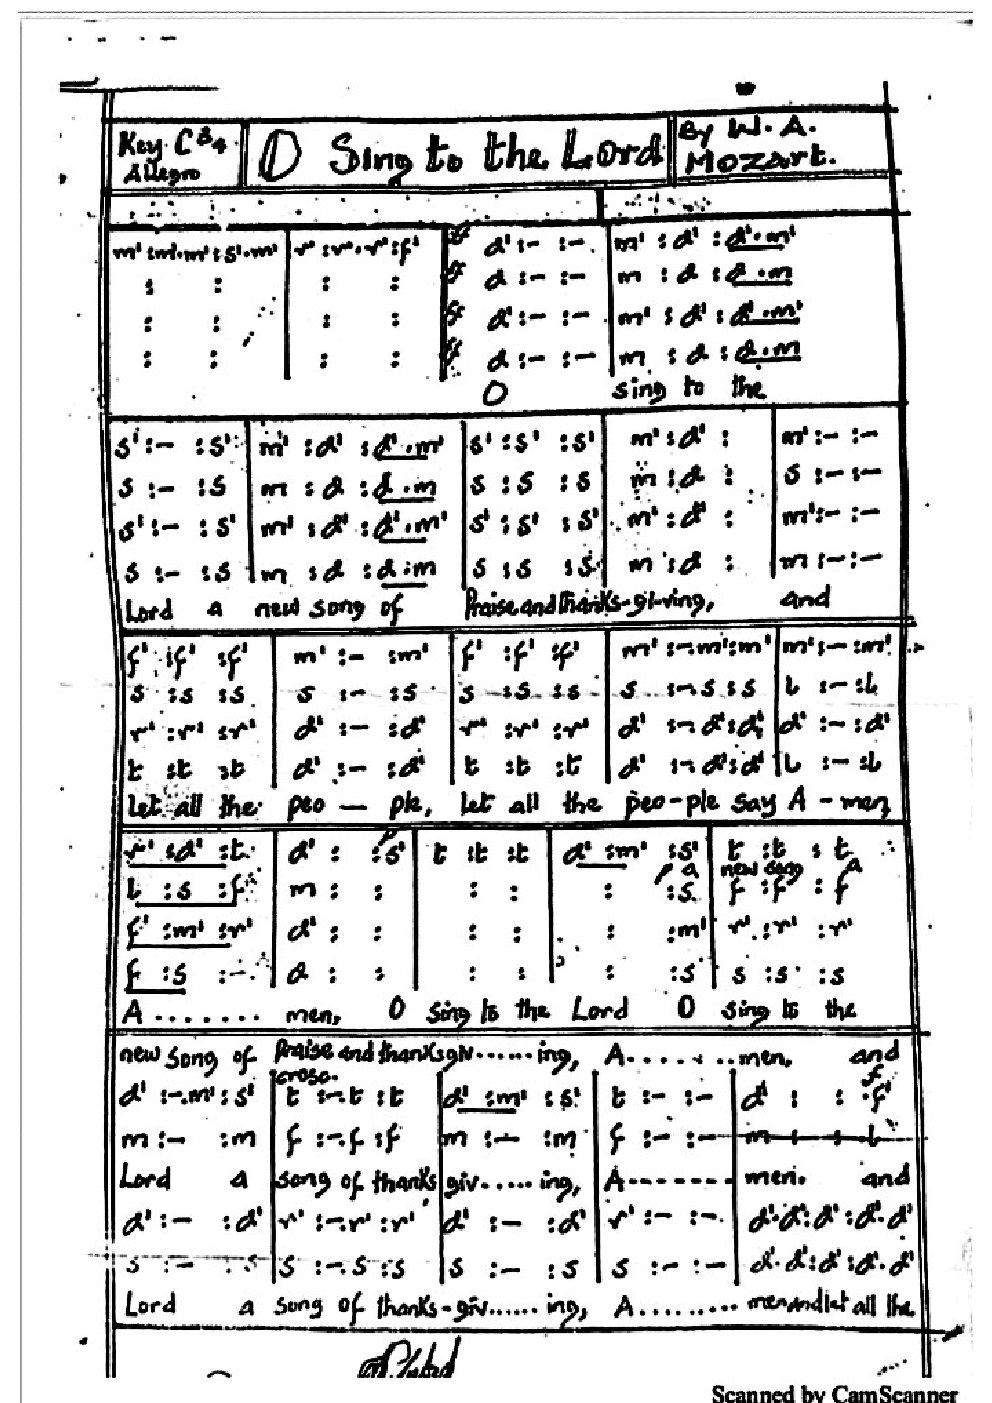 Key C 3/4
Allegro
O Sing to the Lord
By W. A.
Mozart.
m' :m'.m' :s'.m' | r' :r'.r' :f' | ff d' :- :- | m' :d' :d'.m'
: : | : : | ff d :- :- | m :d :d.m
: : | : : | ff d' :- :- | m' :d' :d'.m'
: : | : : | ff d :- :- | m :d :d.m
O sing to the
s' :- :s' | m' :d' :d'.m' | s' :s' :s' | m' :d' : | m' :- :-
s :- :s | m :d :d.m | s :s :s | m :d : | s :- :-
s' :- :s' | m' :d' :d'.m' | s' :s' :s' | m' :d' : | m' :- :-
s :- :s | m :d :d:m | s :s :s | m :d : | m :- :-
Lord a new song of Praise and thanks-gi-ving, and
f' :f' :f' | m' :- :m' | f' :f' :f' | m' :-.m' :m' | m' :- :m'
s :s :s | s :- :s | s :s :s | s :-.s :s | l :- :l
r' :r' :r' | d' :- :d' | r' :r' :r' | d' :-.d' :d' | d' :- :d'
t :t :t | d' :- :d' | t :t :t | d' :-.d' :d' | l :- :l
let all the peo — ple, let all the peo-ple say A - men,
r' :d' :t | d' : :s' | t :t :t | d' :m' :s' | t :t :t
a new song a
l :s :f | m : : | : : | : :s | f :f :f
f' :m' :r' | d' : : | : : | : :m' | r' :r' :r'
f :s :- | d : : | : : | : :s' | s :s :s
A ........ men, O sing to the Lord O sing to the
new song of Praise and thanksgiv......ing, A......... men. and
cresc.
f
d' :-.m' :s' | t :-.t :t | d' :m' :s' | t :- :- | d' : :f'
m :- :m | f :-.f :f | m :- :m | f :- :- | m : : l
Lord a song of thanks giv......ing, A------- men. and
d' :- :d' | r' :-.r' :r' | d' :- :d' | r' :- :- | d'.d' :d' :d'.d'
s :- :s | s :-.s :s | s :- :s | s :- :- | d'.d' :d' :d'.d'
Lord a song of thanks-giv......ing, A......... men and let all the
Scanned by CamScanner